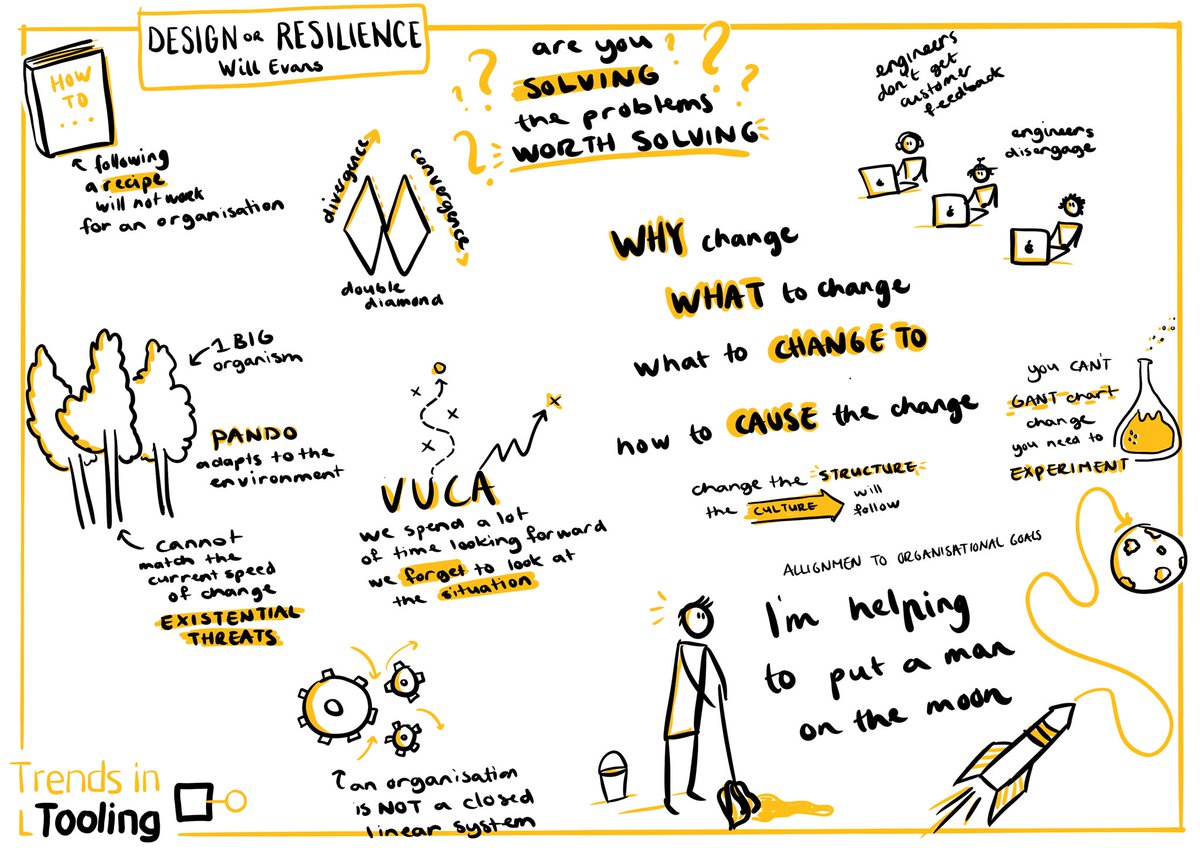 DESIGN or RESILIENCE
Will Evans
HOW
TO
...
following
a recipe
will not work
for an organisation
divergence
convergence
double
diamond
? ? ? ? ? ? ?
are you
SOLVING
the problems
WORTH SOLVING
engineers
don't get
customer
feedback
engineers
disengage
WHY change
WHAT to change
what to CHANGE TO
how to CAUSE the change
change the STRUCTURE
the CULTURE will
follow
you CAN'T
GANT chart
change
you need to
EXPERIMENT
1 BIG
organism
PANDO
adapts to the
environment
cannot
match the
current speed
of change
EXISTENTIAL
THREATS
VUCA
we spend a lot
of time looking forward
we forget to look at
the situation
an organisation
is NOT a closed
linear system
ALLIGNMEN TO ORGANISATIONAL GOALS
I'm helping
to put a man
on the moon
Trends in
L Tooling